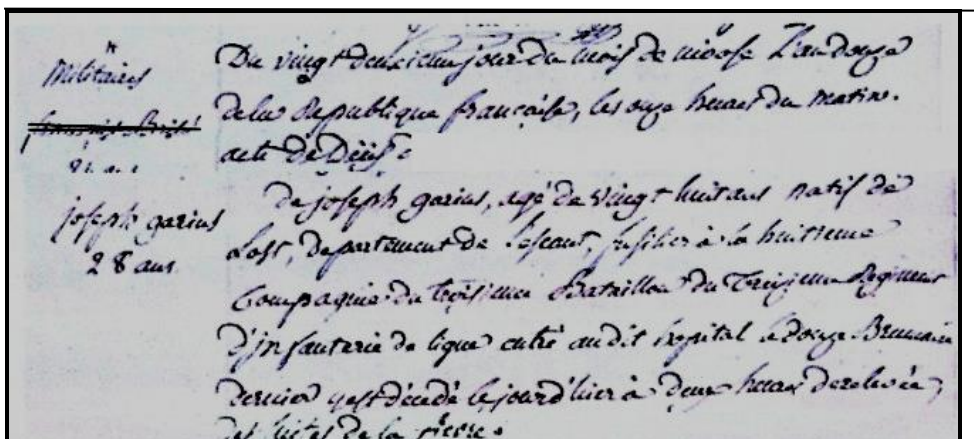 Militaires
28 ans
joseph garius
28 ans.
Du vingt deuxieme jour du mois de nivôse L'an douze
de la Republique francaise, les onze heures du matin.
acte de Décès
De joseph garius, agé de vingt huit ans natif de
Lost, departement de Lescaut, fusilier à la huitieme
Compagnie du troisieme Bataillon du Treizieme Regiment
D'infanterie de ligne entré audit hopital le douze Brumaire
Dernier y est décedé le jour d'hier à deux heures de relevée,
des suites de la fievre.